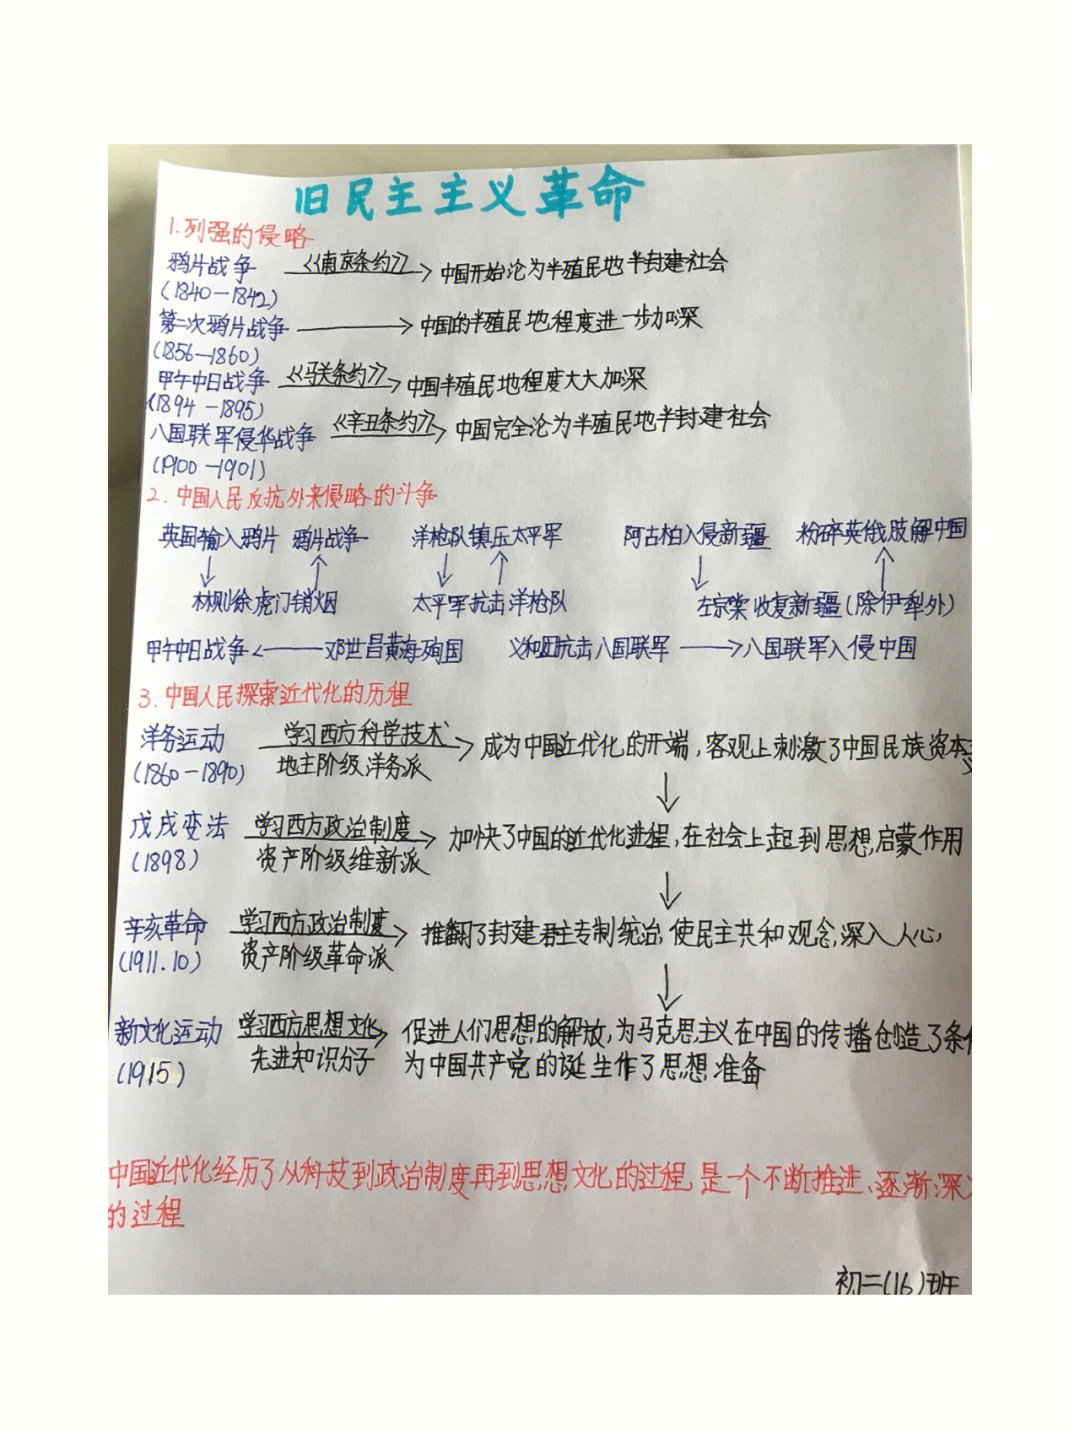 旧民主主义革命
1.列强的侵略
鸦片战争 《南京条约》 中国开始沦为半殖民地半封建社会
(1840—1842)
第二次鸦片战争 中国的半殖民地程度进一步加深
(1856—1860)
甲午中日战争 《马关条约》 中国半殖民地程度大大加深
(1894—1895)
八国联军侵华战争 《辛丑条约》 中国完全沦为半殖民地半封建社会
(1900—1901)
2.中国人民反抗外来侵略的斗争
英国输入鸦片 鸦片战争 洋枪队镇压太平军 阿古柏入侵新疆 粉碎英俄肢解中国
林则徐虎门销烟 太平军抗击洋枪队 左宗棠收复新疆(除伊犁外)
甲午中日战争 邓世昌黄海殉国 义和团抗击八国联军 八国联军入侵中国
3.中国人民探索近代化的历程
洋务运动 学习西方科学技术 成为中国近代化的开端,客观上刺激了中国民族资本主
(1860—1890) 地主阶级洋务派
戊戌变法 学习西方政治制度 加快了中国的近代化进程,在社会上起到思想启蒙作用
(1898) 资产阶级维新派
辛亥革命 学习西方政治制度 推翻了封建君主专制统治,使民主共和观念深入人心,
(1911.10) 资产阶级革命派
新文化运动 学习西方思想文化 促进人们思想的解放,为马克思主义在中国的传播创造了条件
(1915) 先进知识分子 为中国共产党的诞生作了思想准备
中国近代化经历了从科技到政治制度再到思想文化的过程,是一个不断推进、逐渐深入
的过程
初二(16)班